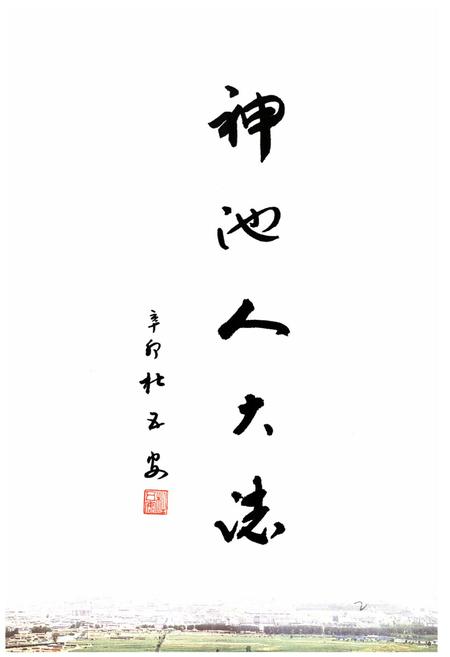 神池人大志
辛卯 杜五安
2